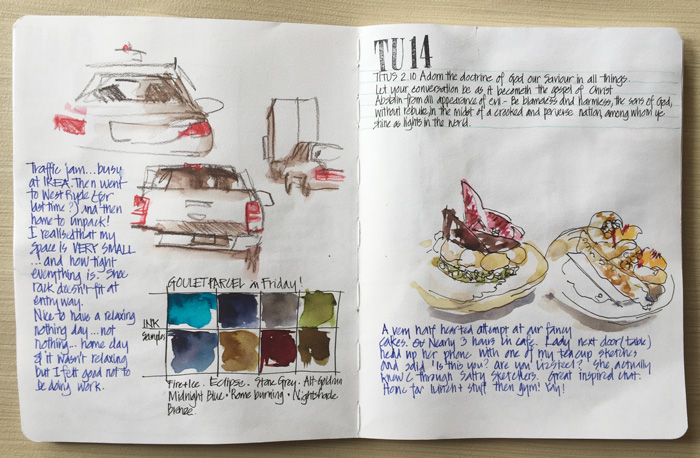 Traffic jam... busy
at IKEA. Then went
to West Ryde (for
last time?) and then
home to unpack!
I realised that my
space is VERY SMALL
... and how tight
everything is. Shoe
rack doesn't fit at
entry way.
Nice to have a relaxing
nothing day... not
nothing... home day
& it wasn't relaxing
but I felt good not to
be doing work.
GOULET PARCEL on Friday!
INK
Samples
Fire+Ice. Eclipse. Stone Grey. Alt-Goldrun
Midnight Blue • Rome burning • Nightshade
Bronze.
TU14
TITUS 2.10 Adorn the doctrine of God our Saviour in all things.
Let your conversation be as it becometh the gospel of Christ
Abstain from all appearance of evil - Be blameless and Harmless, the sons of God,
without rebuke, in the midst of a crooked and perverse nation, among whom ye
shine as lights in the world.
A very half hearted attempt at our fancy
cakes. Nearly 3 hours in cafe. Lady next door (table)
held up her phone with one of my teacup sketches
and said 'Is this you? are you Liz Steel?' She actually
knew through Salty Sketchers. Great inspired chat.
Home for lunch + stuff then gym!